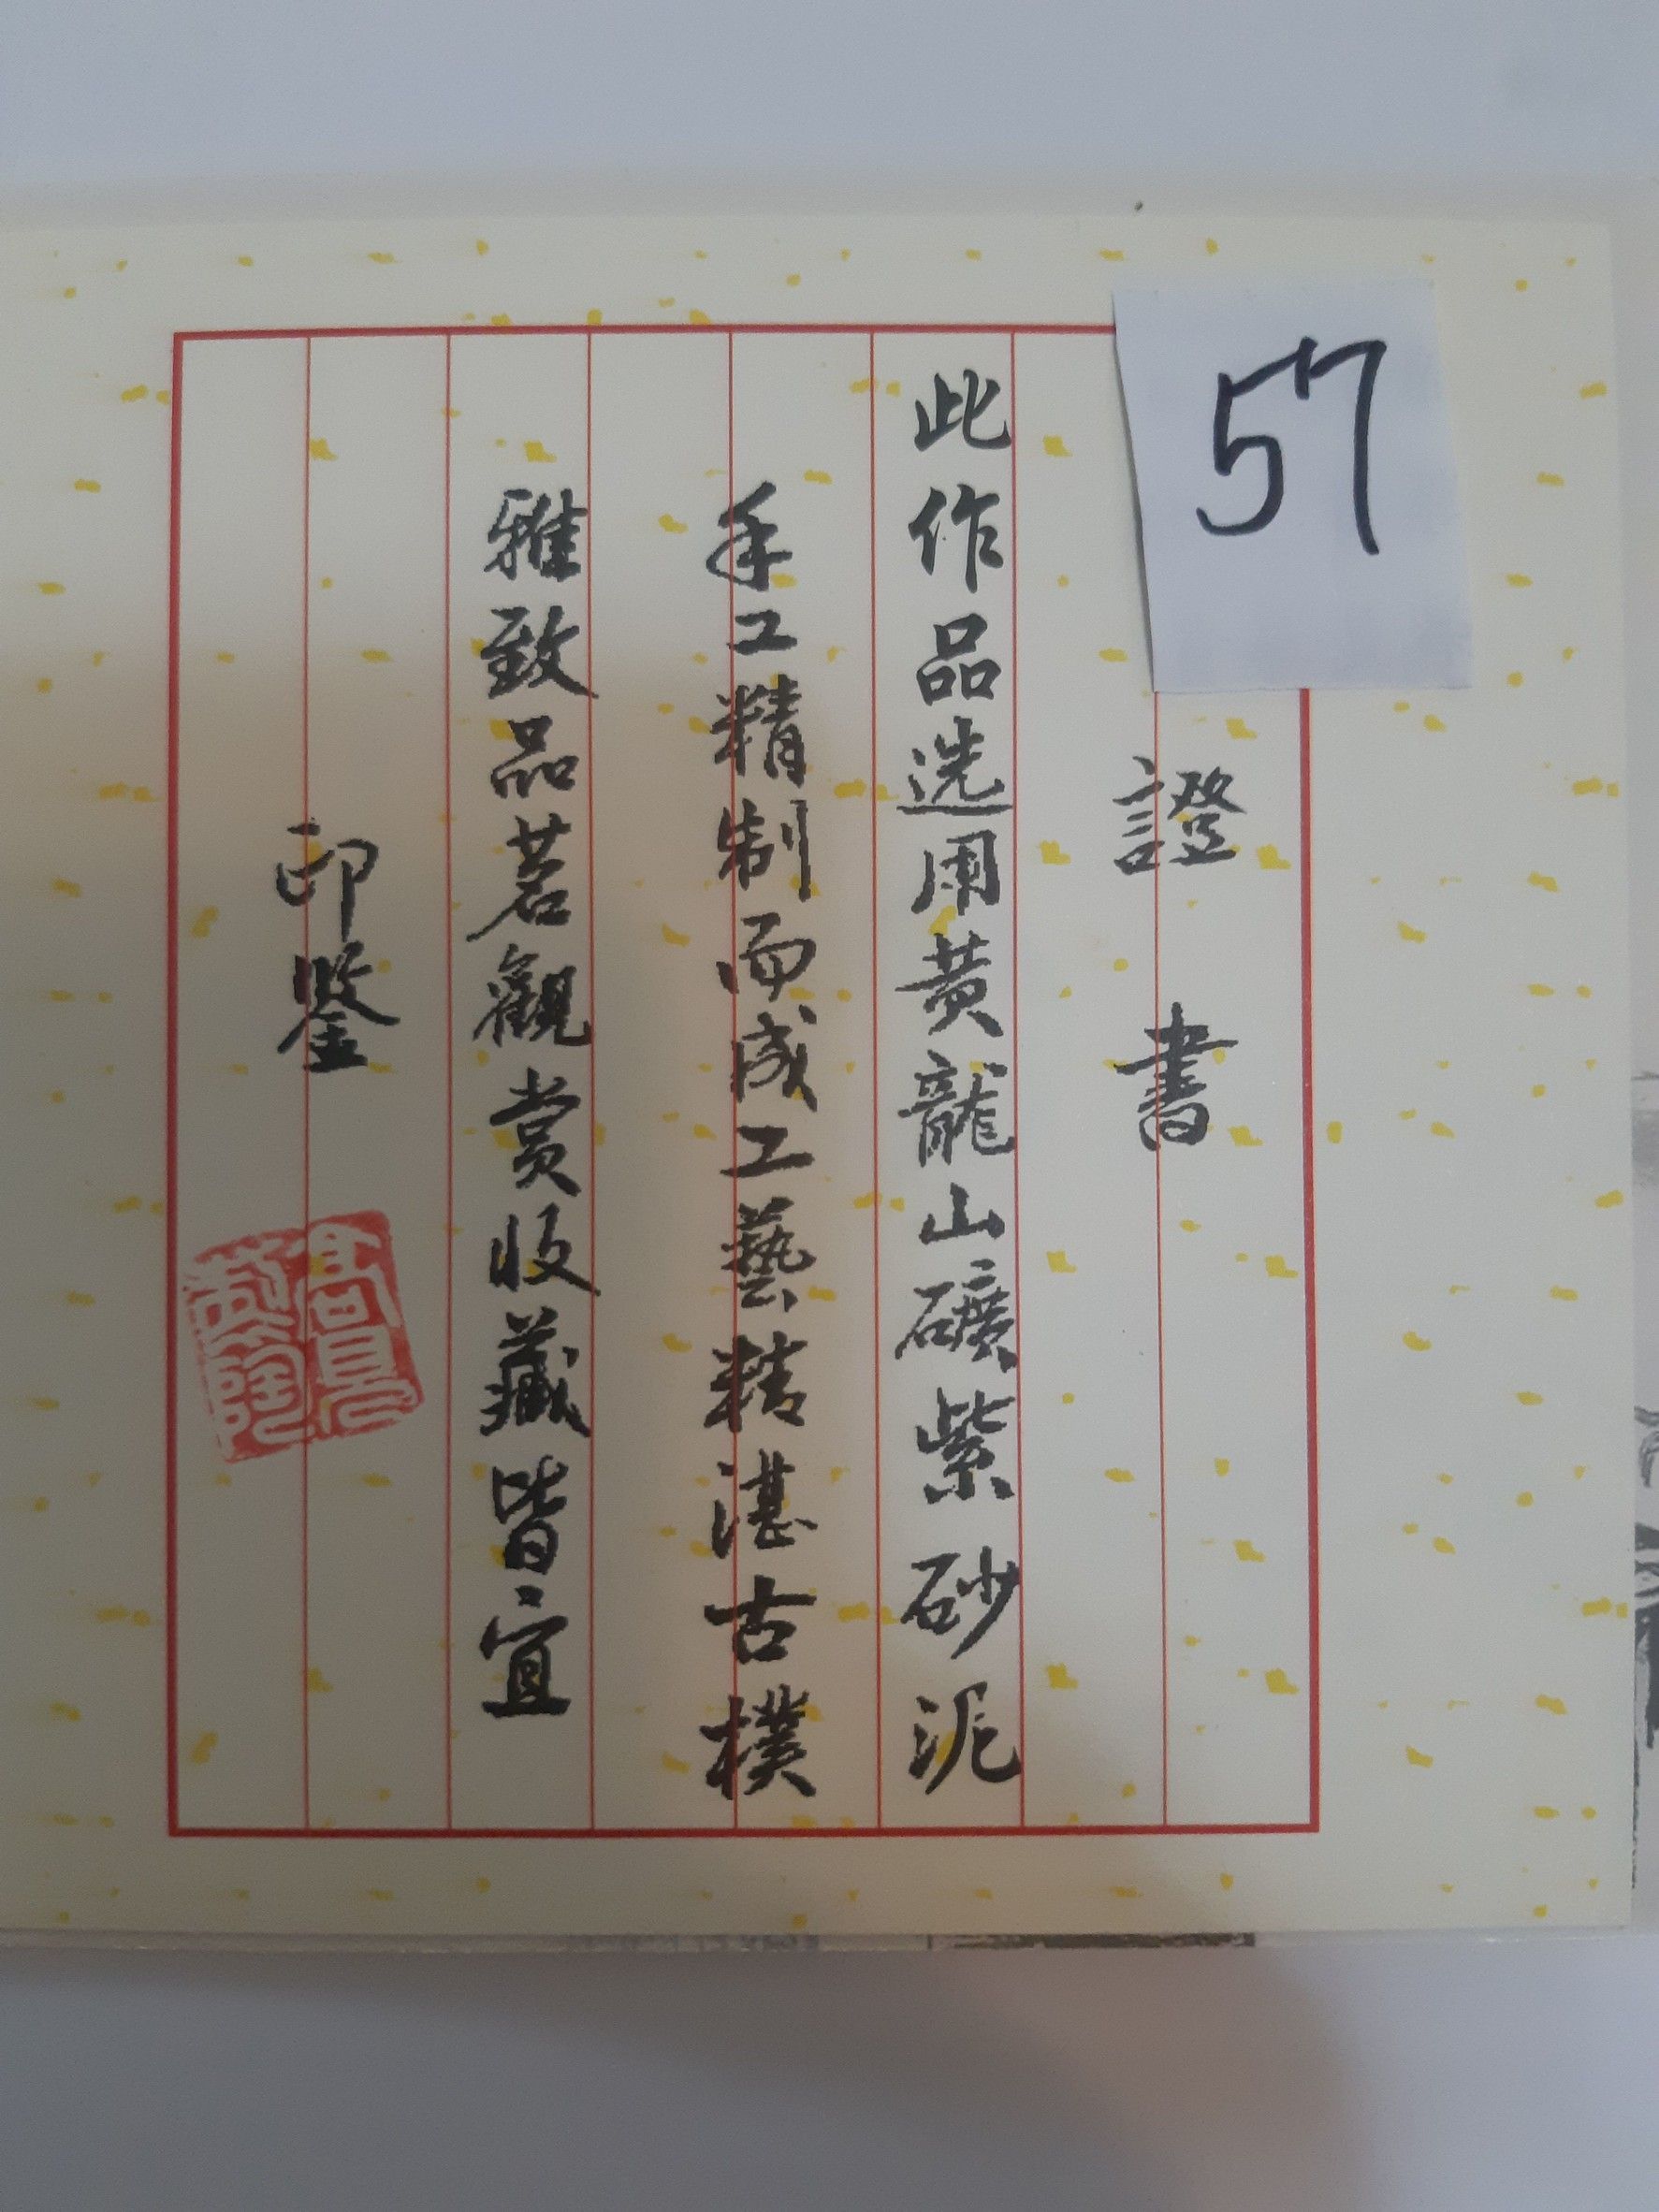 57
證書
此作品选用黄龍山礦紫砂泥
手工精制而成工藝精湛古樸
雅致品茗觀賞收藏皆宜
印鑒